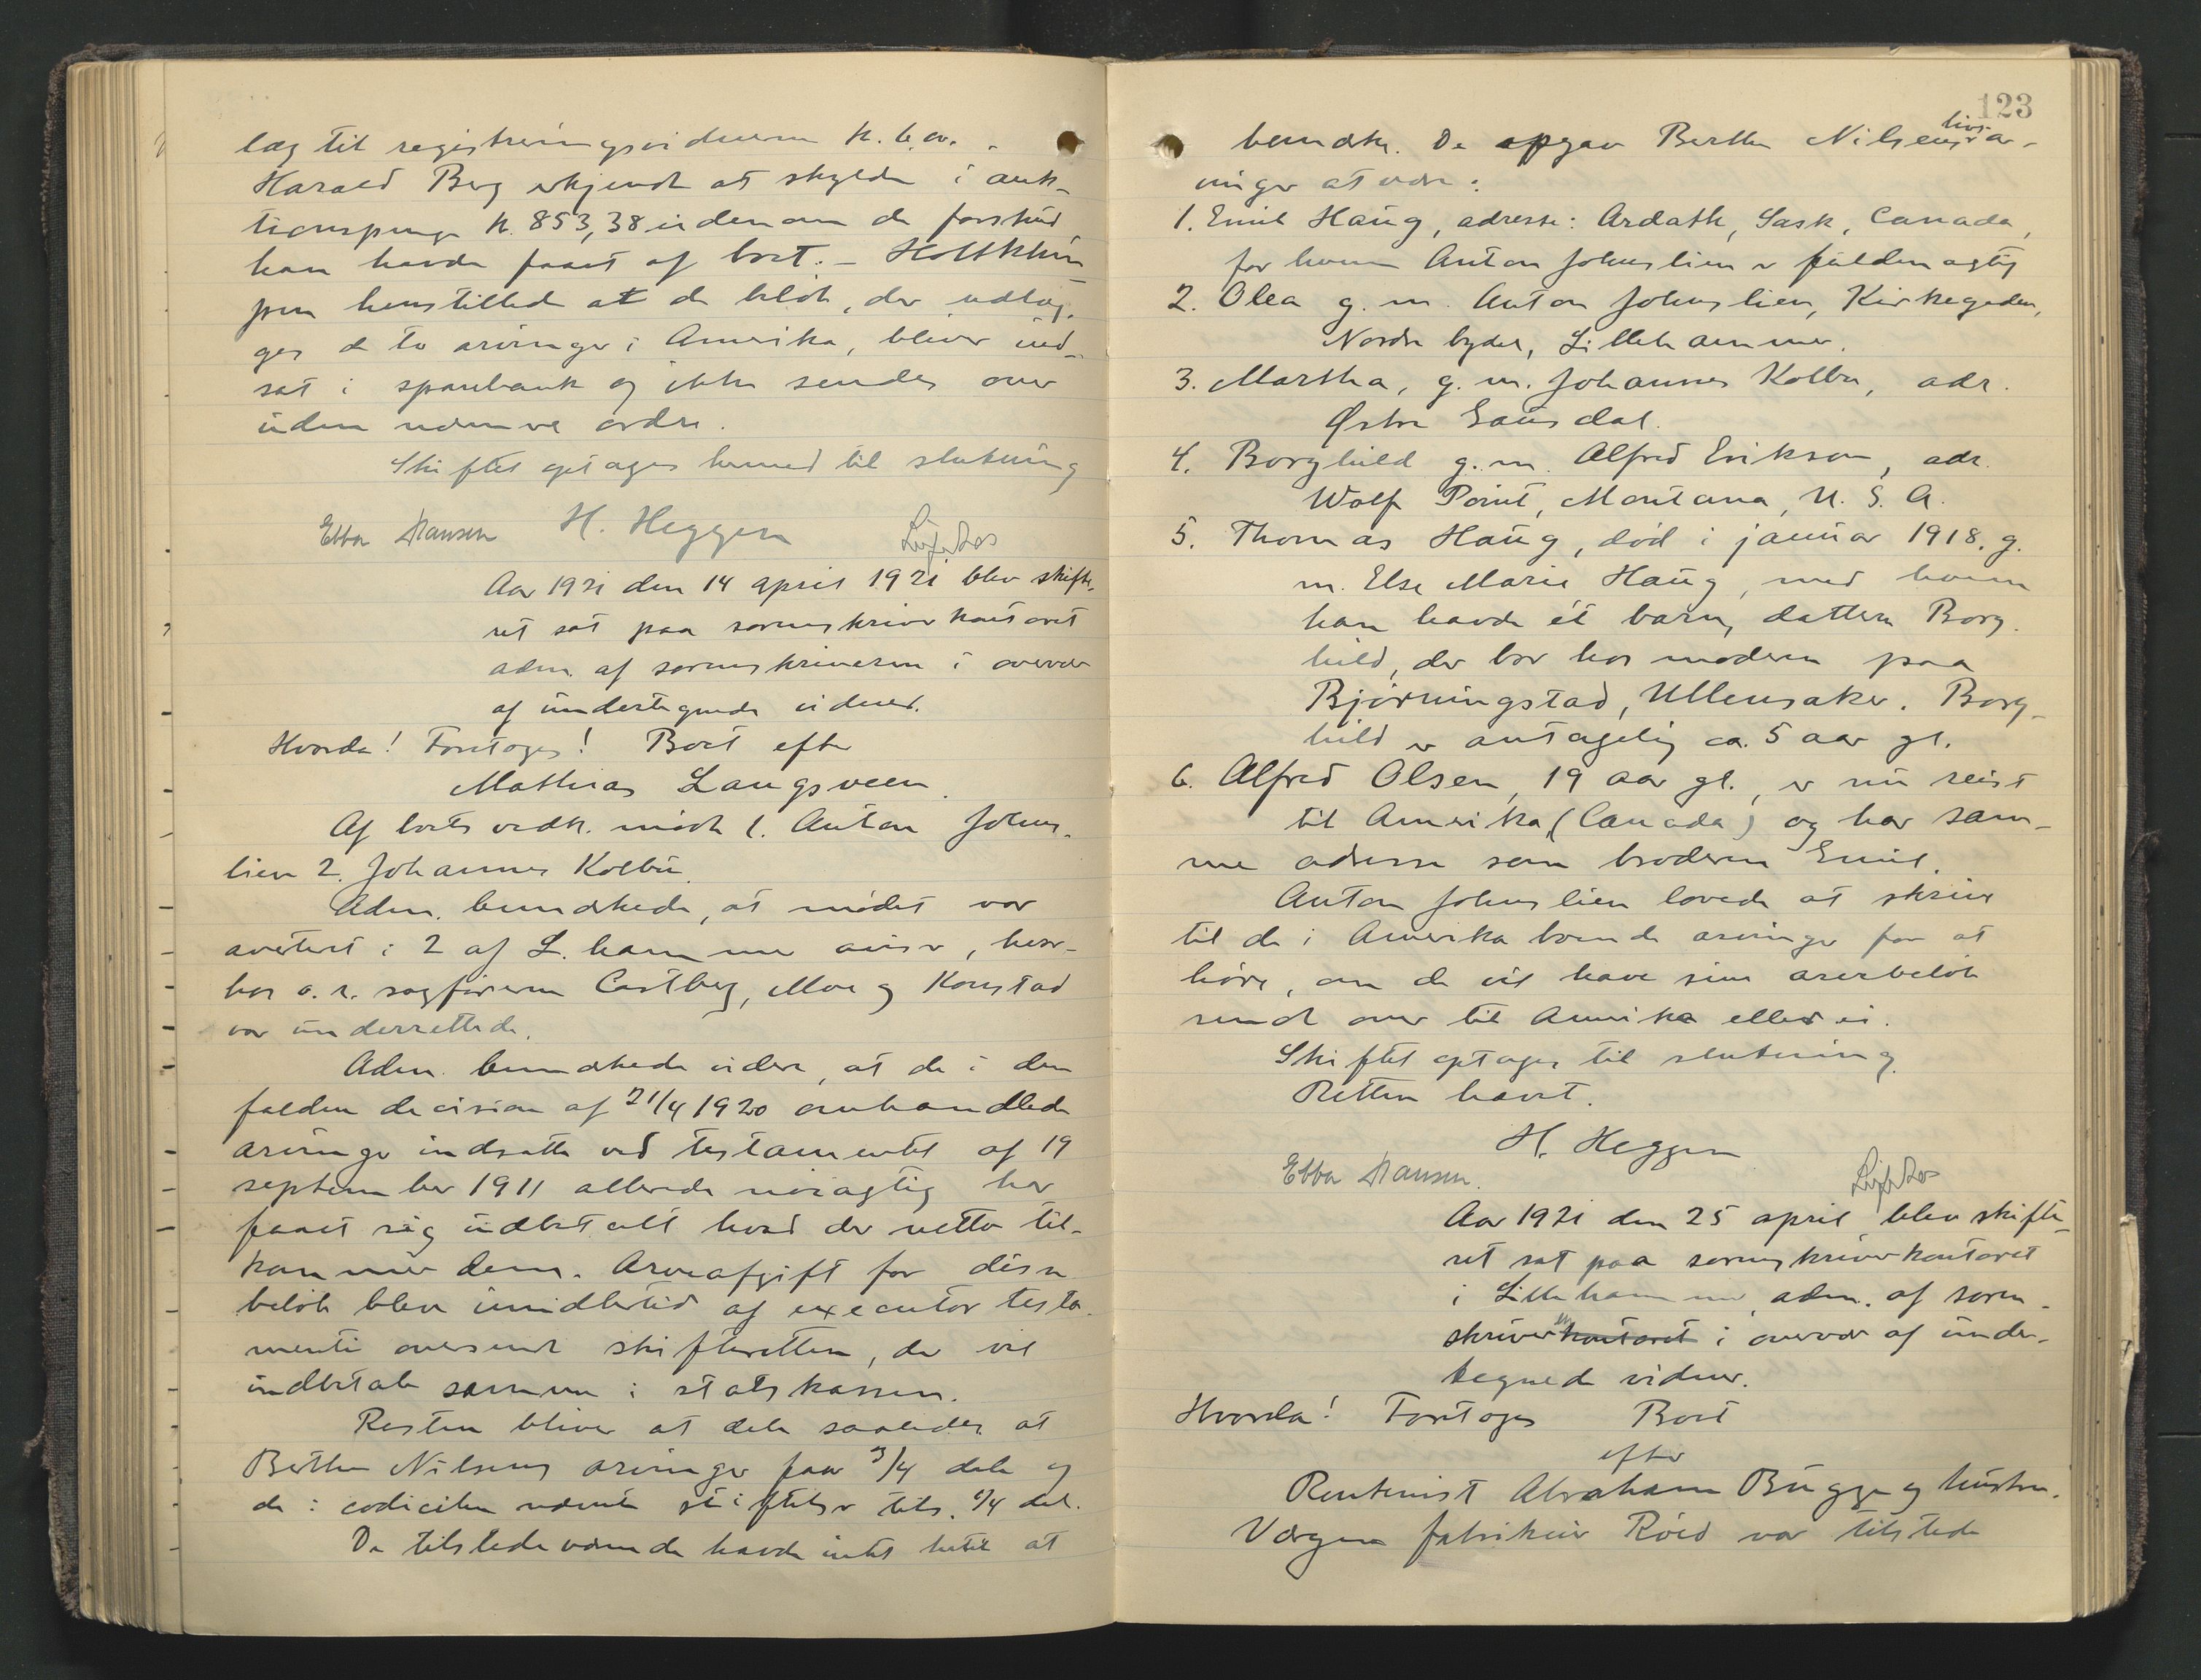 læg til registreringsvidnerne k. 6.00.
Harald Berg erkjendte at skylde i auk-
tionspenge k. 853,38 udenom de forskud
han havde faaet af boet. -
henstilled at de beløb, der udlæg-
ges de to arvinger i Amerika, bliver ind-
sat i sparebank og ikke sendes over
uden nærmere ordre.
Skiftet optages hermed til slutning
Ebba Hansen H. Heggen
Aar 1921 den 14 april 1921 blev skifte-
ret sat paa sorenskriverkontoret
adm. af sorenskriveren i overvær
af undertegnede vidner.
Hvorda! Foretoges! Boet efter
Mathias Langsveen.
Af boets vedk. mødte 1. Anton Johns-
lien 2. Johannes Kolbu.
Adm. bemærkede, at mødet var
avertert i 2 af L.hammer aviser, hver-
hos o.r. sagførerne Castberg, Moe og Konstad
var underrettede.
Adm. bemærkede videre, at de i den
faldne decision af 21/4 1920 omhandlede
arvinger indsatte ved testamentet af 19
september 1911 allerede nøiagtig har
faaet sig udbetalt hvad der netto til-
kommer dem. Arveafgift for disse
beløb blev imidlertid af executor testa-
menti oversendt skifteretten, der vil
indbetale samme i statskassen.
Resten bliver at dele saaledes at
Berthe Nilsens arvinger faar 3/4 dele og
de i codicilen nævnte stiftelser tils. 1/4 del.
De tilstedeværende havde intet hertil at
123
bemærke. De opgav Berthe Nilsens livsar-
vinger at være:
1. Emil Haug, adresse: Ardath, Sask, Canada,
for hvem Anton Johnslien er fuldmægtig
2. Olea g. m. Anton Johnslien, Kirkegaden,
Nordre bydel, Lillehammer.
3. Martha, g. m. Johannes Kolbu, adr.
Østre Gausdal.
4. Borghild g. m. Alfred Erikson, adr.
Wolf Point, Montana, U. S. A.
5. Thomas Haug, død i januar 1918, g.
m. Else Marie Haug, med hvem
han havde ét barn, datteren Borg-
hild, der bor hos moderen paa
Bjørningstad, Ullensaker. Borg-
hild er antagelig ca. 5 aar gl.
6. Alfred Olsen, 19 aar gl., er nu reist
til Amerika (Canada) og har sam-
me adresse som broderen Emil.
Anton Johnslien lovede at skrive
til de i Amerika boende arvinger for at
høre, om de vil have sine arvebeløb
sendt over til Amerika eller ei.
Skiftet optages til slutning.
Retten hævet.
H. Heggen
Ebba Hansen.
Aar 1921 den 25 april blev skifte-
ret sat paa sorenskriverkontoret
i Lillehammer, adm. af soren-
skriveren kontoret i overvær af under-
tegnede vidner.
Hvorda! Foretoges Boet
efter
Rentenist Abraham Bugge og hustru.
Værgen fabrikeier Røed var tilstede